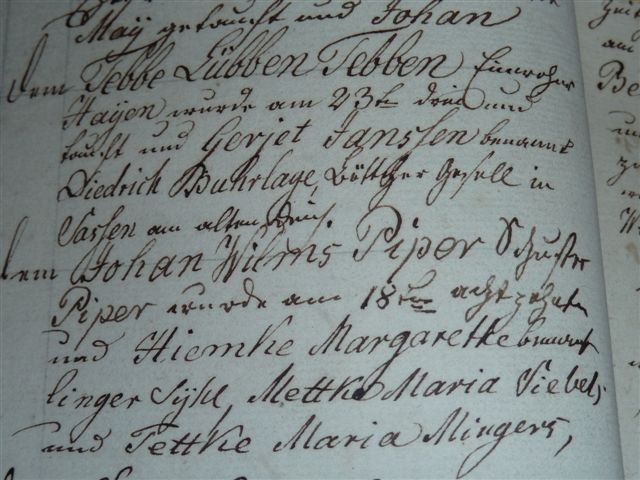 May getauft und Johan
dem Tebbe Lübben Tebben Einwohner
Hayen wurde am 23ten drei und
tauft und Gerjet Janssen benannt
Diedrich Buhrlage, Böttcher Gesell in
Sassen am alten Deich
dem Johan Wilms Piper Schuster
Piper wurde am 18ten achtzehnten
und Hiemke Margaretke benannt
linger Syhl, Mettke Maria Siebels
und Tettke Maria Mingers,